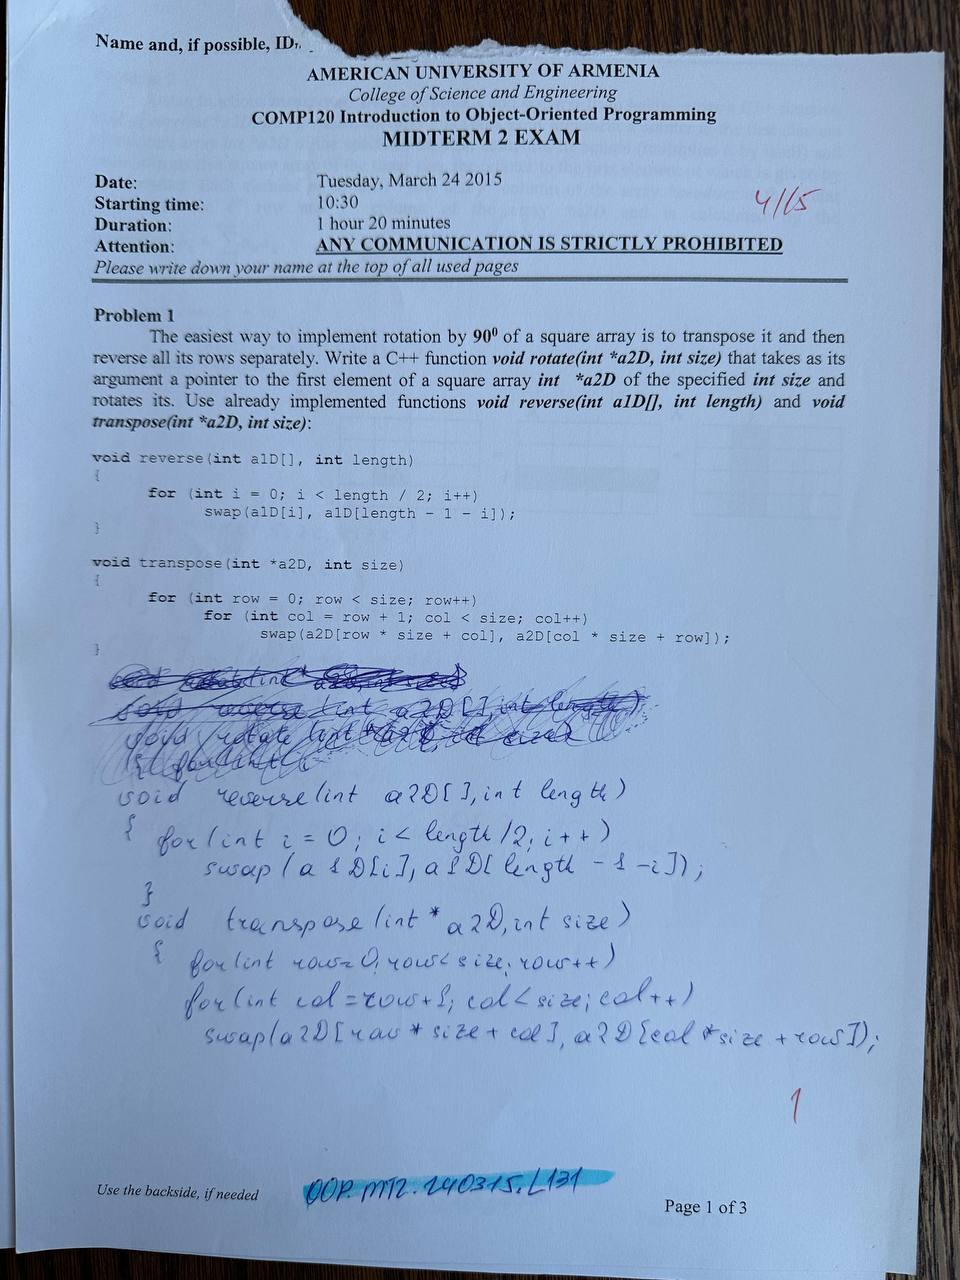 Name and, if possible, ID
AMERICAN UNIVERSITY OF ARMENIA
College of Science and Engineering
COMP120 Introduction to Object-Oriented Programming
MIDTERM 2 EXAM
Date: Tuesday, March 24 2015
Starting time: 10:30
Duration: 1 hour 20 minutes
Attention: ANY COMMUNICATION IS STRICTLY PROHIBITED
Please write down your name at the top of all used pages
4/15
Problem 1
The easiest way to implement rotation by 90⁰ of a square array is to transpose it and then
reverse all its rows separately. Write a C++ function void rotate(int *a2D, int size) that takes as its
argument a pointer to the first element of a square array int *a2D of the specified int size and
rotates its. Use already implemented functions void reverse(int a1D[], int length) and void
transpose(int *a2D, int size):
void reverse(int a1D[], int length)
{
for (int i = 0; i < length / 2; i++)
swap(a1D[i], a1D[length - 1 - i]);
}
void transpose(int *a2D, int size)
{
for (int row = 0; row < size; row++)
for (int col = row + 1; col < size; col++)
swap(a2D[row * size + col], a2D[col * size + row]);
}
void reverse (int a2D[], int length)
void rotate (int *a2D, int size)
void reverse (int a2D[], int length)
{ for (int i = 0; i < length /2; i++)
swap (a1D[i], a1D[length - 1 - i]);
}
void transpose (int * a2D, int size)
{ for (int row=0; row< size; row++)
for (int col = row+1; col < size; col++)
swap(a2D[row * size + col], a2D[col * size + row]);
1
Use the backside, if needed
OOP. MT2. 240315. L131
Page 1 of 3